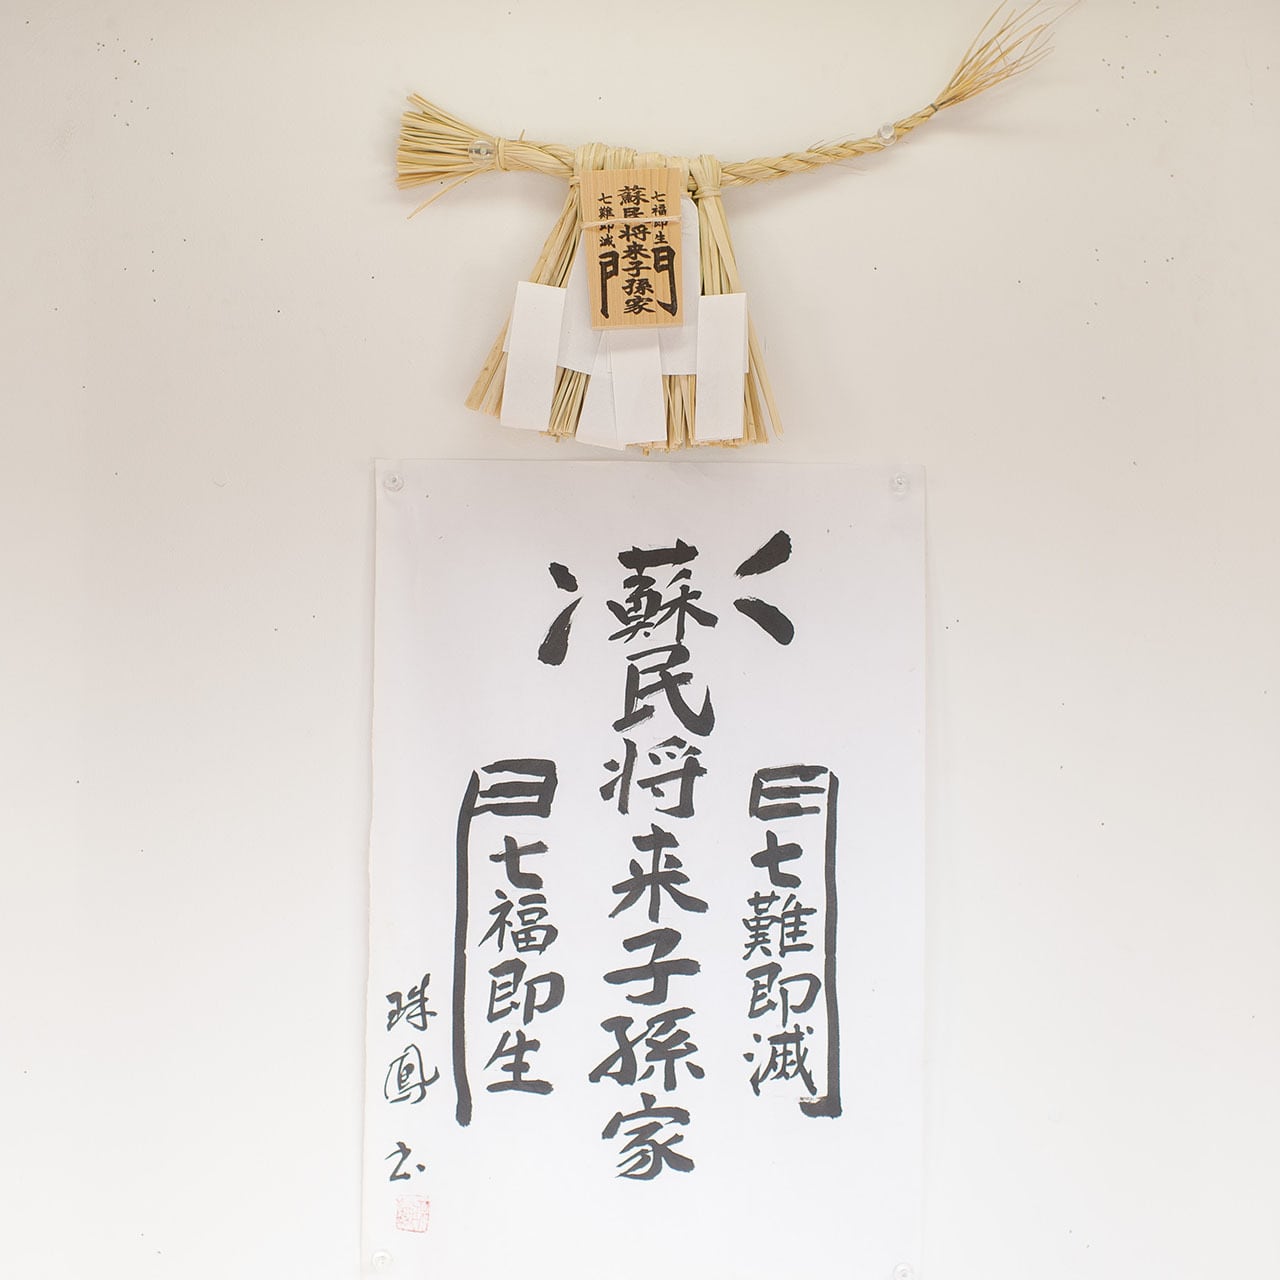 七福即生
蘇民将来子孫家
七難即滅
門
笑
蘇民将来子孫家
門
七難即滅
七福即生
珠鳳書